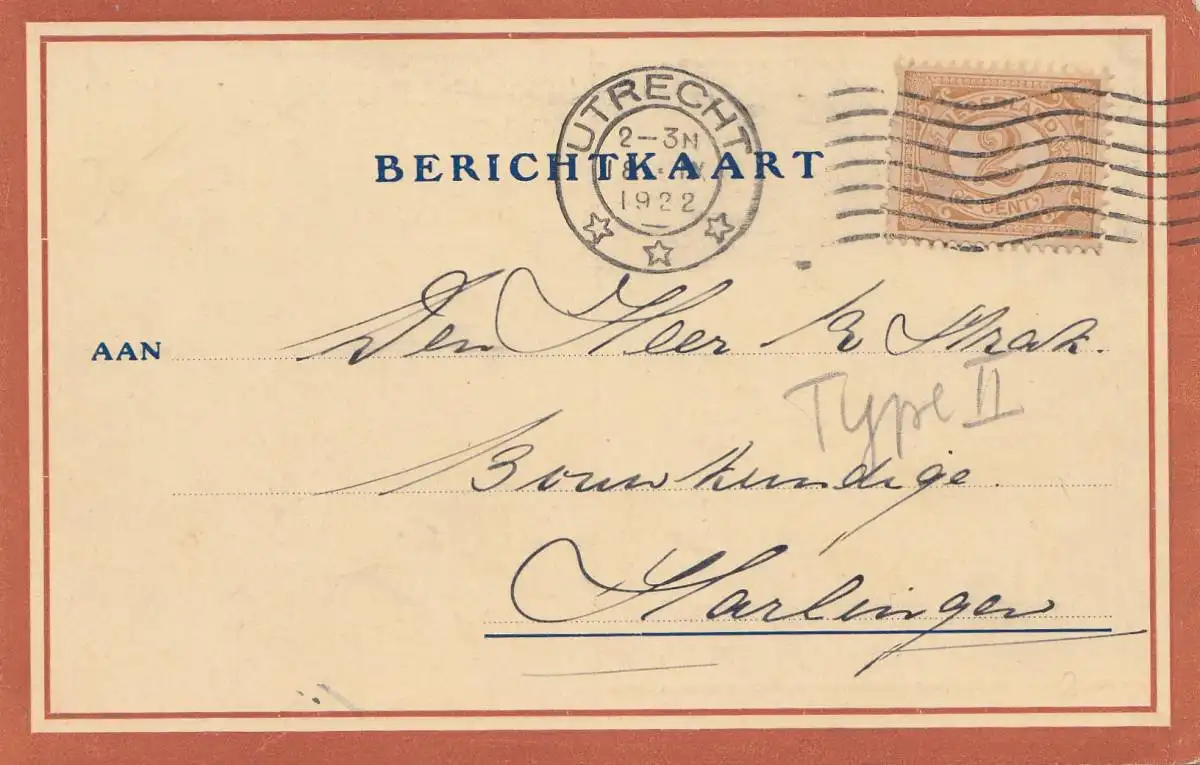 UTRECHT
2-3N
1922
BERICHTKAART
NEDERLAND
2
CENT
AAN Den Heer
Type II
Bouwkundige.
Harlingen